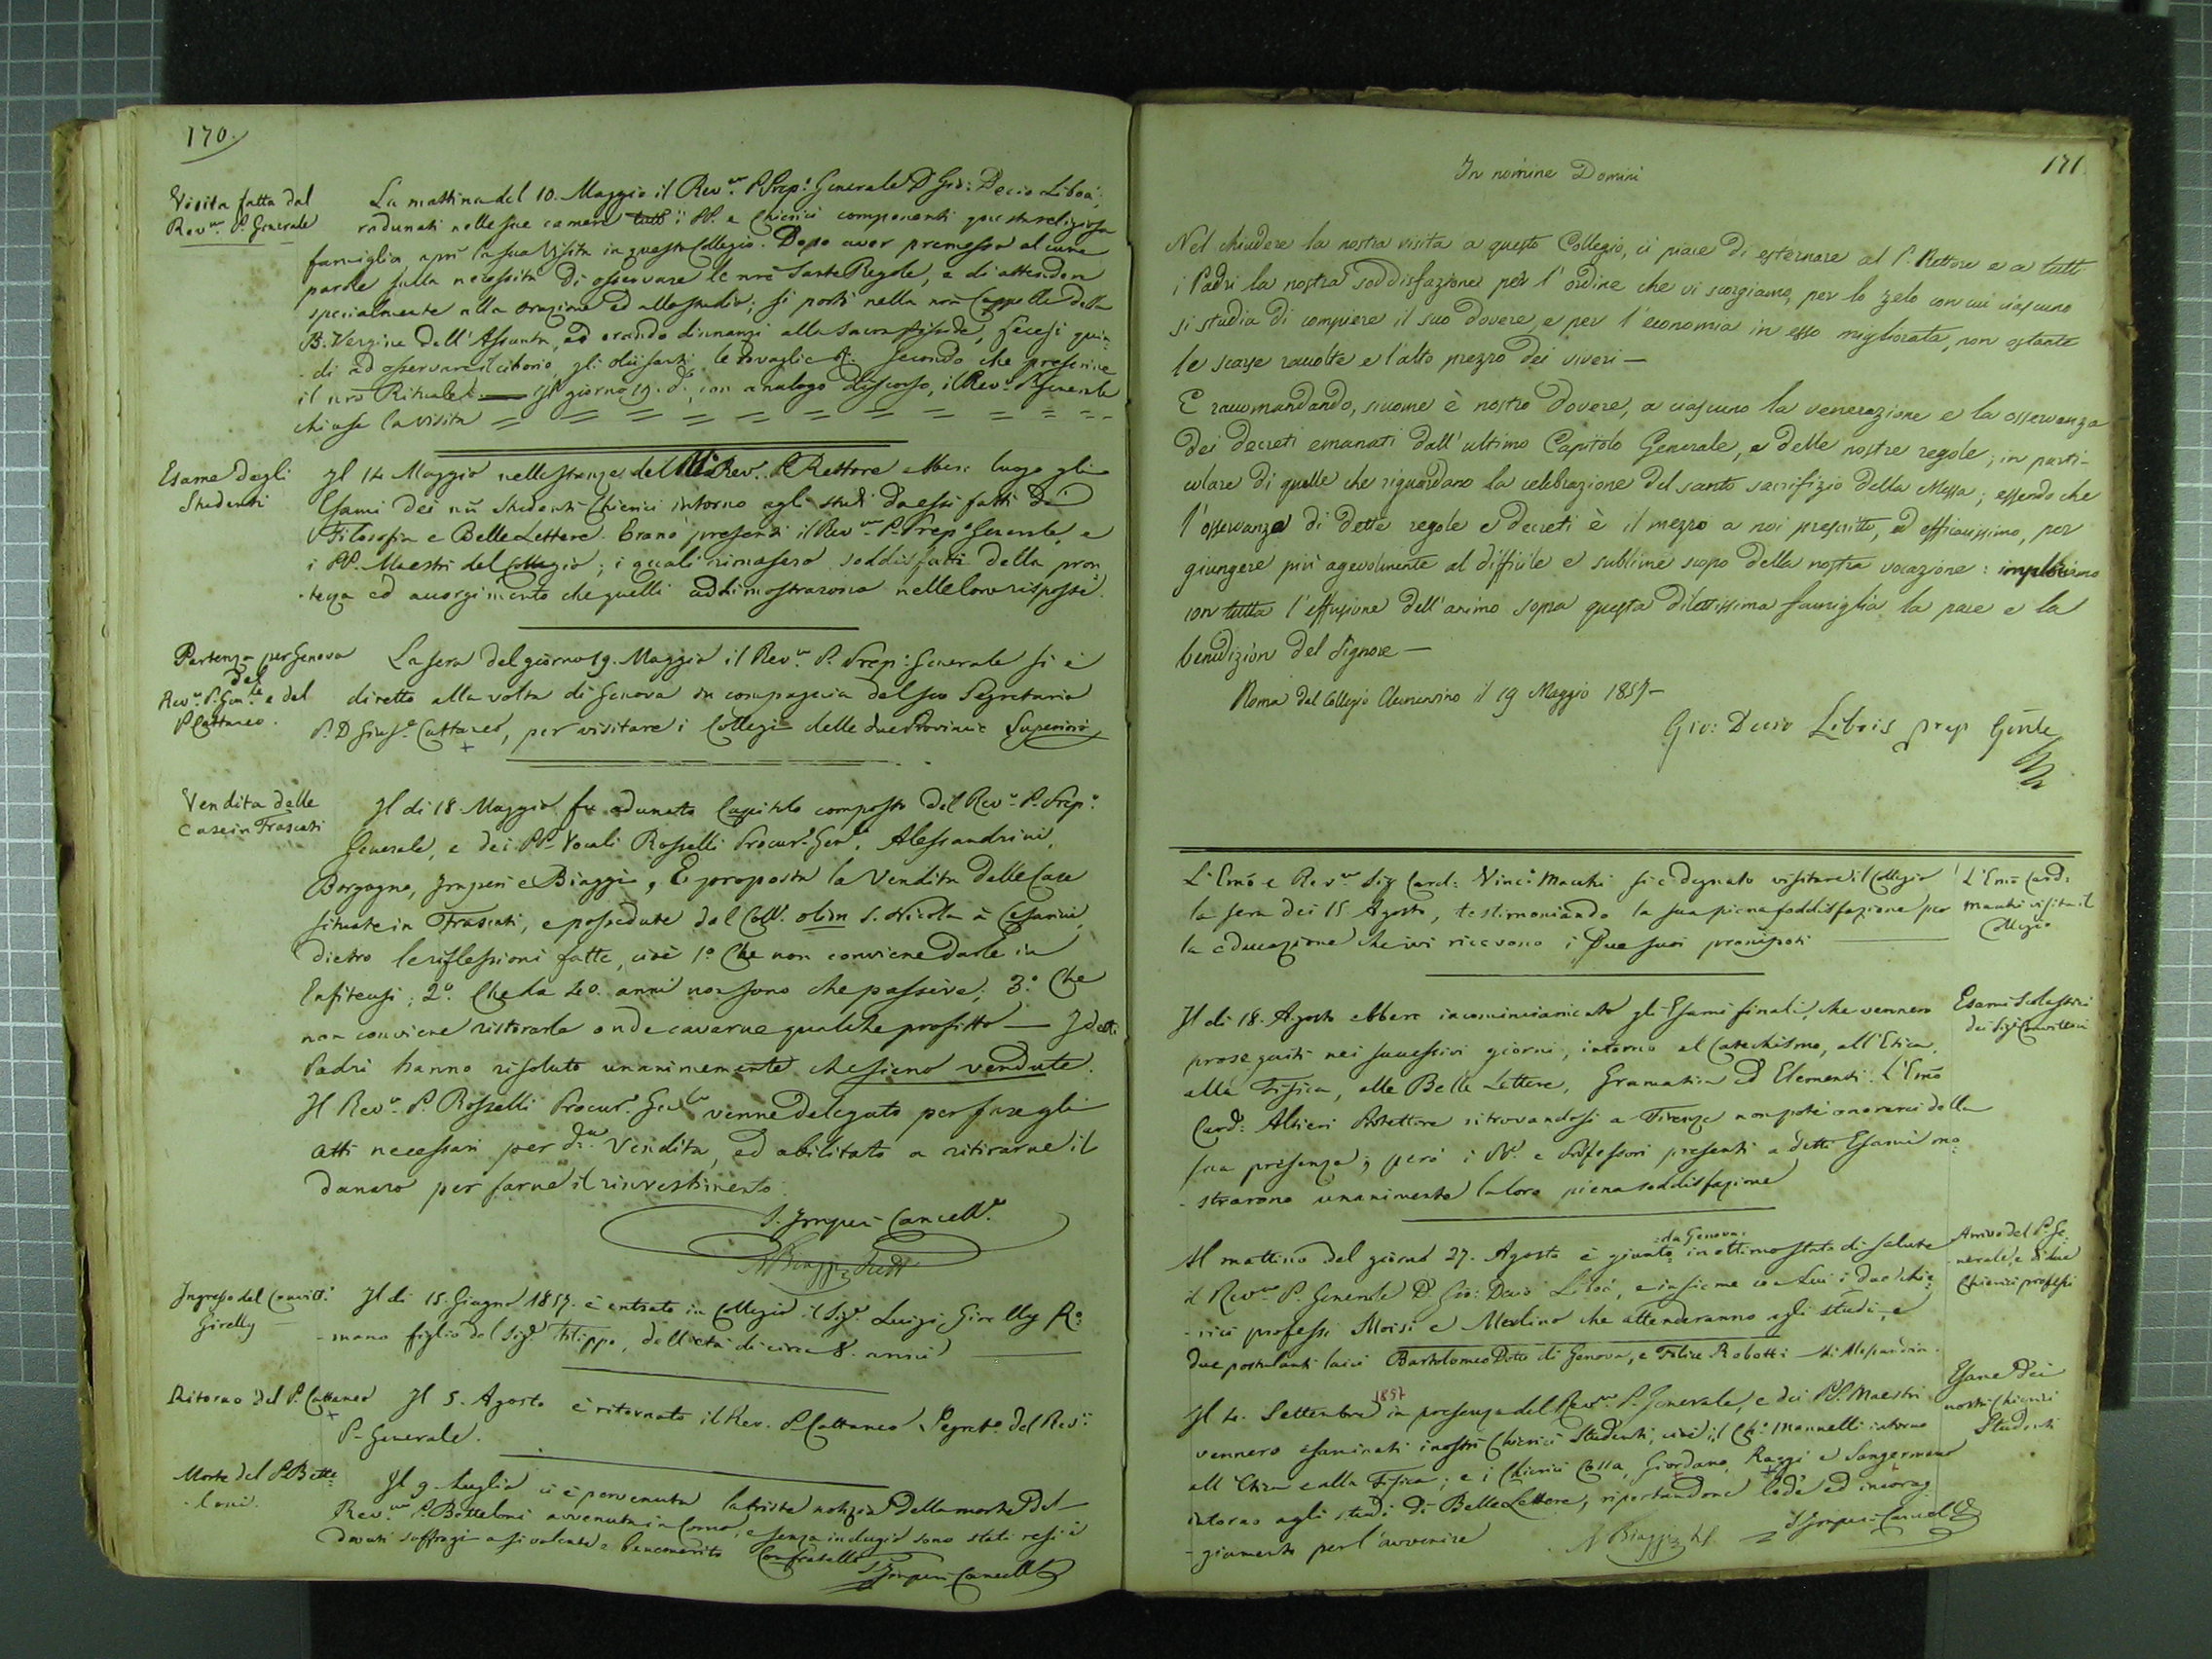 170.
Visita fatta dal
Rev.mo P. Generale
La mattina del 10. Maggio il Rev.mo P. Prep.o Generale D. Gio: Decio Liboà,
radunati nelle sue camere tutti i PP. e Chierici componenti questa religiosa
famiglia aprì la sua Visita in questo Collegio. Dopo aver premesso alcune
parole sulla necessità di osservare le nr̃e Sante Regole, e di attendere
specialmente alla orazione ed allo studio; si portò nella nr̃a Cappella della
B. Vergine dell'Assunta, ed orando dinnanzi alla sacra Piside, fecesi quin=
di ad osservare il Ciborio, gli olii santi, le tovaglie &. secondo che prescrive
il nr̃o Rituale. — Il giorno 19. d.o, con analogo discorso, il Rev. P. Generale
chiuse la visita = = = = = = = = = = =
Esame degli
Studenti
Il 14 Maggio nelle stanze del M. Rev. P. Rettore ebber luogo gli
Esami dei nr̃i Studenti Chierici intorno agli studi da essi fatti di
Filosofia e Belle Lettere. Erano presenti il Rev.mo P. Prep.o Generale, e
i PP. Maestri del Collegio; i quali rimasero soddisfatti della pron
-tezza ed accorgimento che quelli addimostrarono nelle loro risposte.
Partenza per Genova
del
Rev.mo P. Gen.le e del
P. Cattaneo.
La sera del giorno 19. Maggio il Rev.mo P. Prep.o Generale si è
diretto alla volta di Genova in compagnia del suo Segretario
P. D. Gius.e Cattaneo, per visitare i Collegi delle due Provincie Superiori
+
Vendita delle
Case in Frascati
Il di 18. Maggio fu adunato Capitolo composto del Rev.mo P. Prep.o
Generale, e dei PP. Vocali Rosselli Procur. Gen., Alessandrini,
Borgogno, Imperi e Biaggi, E proposta la Vendita delle Case
situate in Frascati, e possedute dal Coll.o olim S. Nicola a Cesarini,
dietro le riflessioni fatte, cioè 1.o Che non conviene darle in
Enfiteusi; 2.o Che da 40. anni non sono che passive; 3.o Che
non conviene ristorarle onde cavarne qualche profitto — I detti
Padri hanno risoluto unanimemente che sieno vendute.
Il Rev. P. Rosselli Procur. Gen.le venne delegato per fare gli
atti necessari per d.ta Vendita, ed abilitato a ritirarne il
danaro per farne il rinvestimento.
S. Imperi Cancell.e
N Biaggi Rett.
Ingresso del Convitt.e
Girelly
Il di 15. Giugno 1857. è entrato in Collegio il Sig. Luigi Girelly Ro=
-mano figlio del Sig. Filippo, dell'età di circa 8. anni
Ritorno del P. Cattaneo
+
Il 5. Agosto è ritornato il Rev. P. Cattaneo Segret.o del Rev.mo
P. Generale.
Morte del P. Bette=
-loni.
Il 9. Luglio ci è pervenuta la triste notizia della morte del
Rev.mo P. Betteloni avvenuta in Como, e senza indugio sono stati resi i
dovuti suffragi a si valente e benemerito Confratello
S. Imperi Cancell.
171
In nomine Domini
Nel chiudere la nostra visita a questo Collegio, ci piace di esternare al P. Rettore e a tutti
i Padri la nostra soddisfazione per l'ordine che vi scorgiamo, per lo zelo con cui ciascuno
si studia di compiere il suo dovere, e per l'economia in esso migliorata, non ostante
le scarse raccolte e l'alto prezzo dei viveri —
E raccomandando, siccome è nostro dovere, a ciascuno la venerazione e la osservanza
dei decreti emanati dall'ultimo Capitolo Generale, e delle nostre regole; in parti-
colare di quelle che riguardano la celebrazione del santo sacrifizio della Messa; essendo che
l'osservanza di dette regole e decreti è il mezzo a noi prescritto, ed efficacissimo, per
giungere più agevolmente al difficile e sublime scopo della nostra vocazione: imploriamo
con tutta l'effusione dell'animo sopra questa dilettissima famiglia la pace e la
benedizion del Signore —
Roma dal Collegio Clementino il 19 Maggio 1857 —
Gio: Decio Libois prep Gen̄le
L'Em̃o e Rev.mo Sig Card: Vinc. Macchi si è degnato visitare il Collegio
la sera dei 15 Agosto, testimoniando la sua piena soddisfazione per
la educazione che ivi ricevono i due suoi pronipoti
L'Em̃o Card:
Macchi visita il
Collegio
Il di 18. Agosto ebbero incominciamento gli Esami finali, che vennero
proseguiti nei successivi giorni, intorno al Catechismo, all'Etica,
alla Fisica, alle Belle Lettere, Gramatica ed Elementi. L'Em̃o
Card: Altieri Protettore ritrovandosi a Firenze non potè onorarci della
sua presenza; però i PP. e Professori presenti a detti Esami mo=
-strarono unanimente la loro piena soddisfazione
Esami Scolastici
dei Sig.i Convittori
Il mattino del giorno 27. Agosto è giunto =da Genova= in ottimo stato di salute
il Rev.mo P. Generale D. Gio: Decio Libоà, e insieme con Lui i due Chie=
-rici professi Moisi e Merlino che attenderanno agli studi, e
due postulanti laici Bartolomeo Dotto di Genova, e Felice Robotti di Alessandria.
Arrivo del P. Ge-
nerale, e di due
Chierici professi
Il 4. Settembre 1857 in presenza del Rev.mo P. Generale, e dei PP. Maestri
vennero esaminati i nostri Chierici Studenti, cioè il Ch.o Mannelli intorno
all'Etica e alla Fisica; e i Chierici Cossa, Giordano, Raggi e Sangermano
intorno agli studi di Belle Lettere, riportandone lode ed incorag
-giamento per l'avvenire
Esame dei
nostri Chierici
Studenti
N Biaggi
S Imperi Cancell